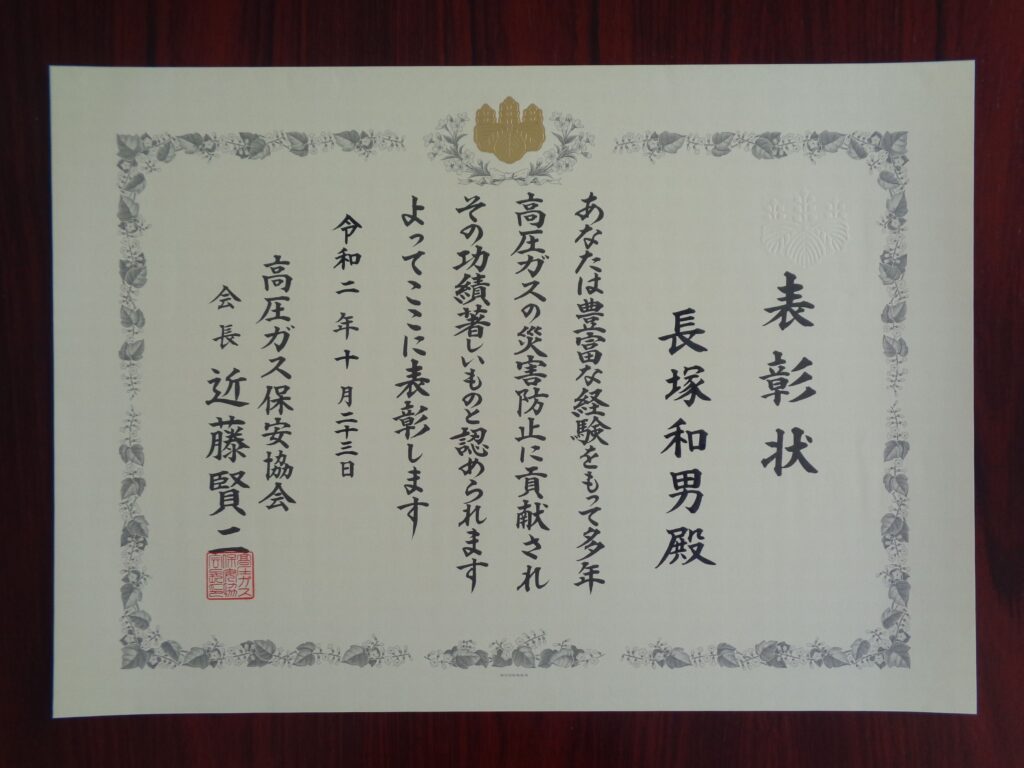 表彰状
長塚和男殿
あなたは豊富な経験をもって多年
高圧ガスの災害防止に貢献され
その功績著しいものと認められます
よってここに表彰します
令和二年十月二十三日
高圧ガス保安協会
会長 近藤賢二